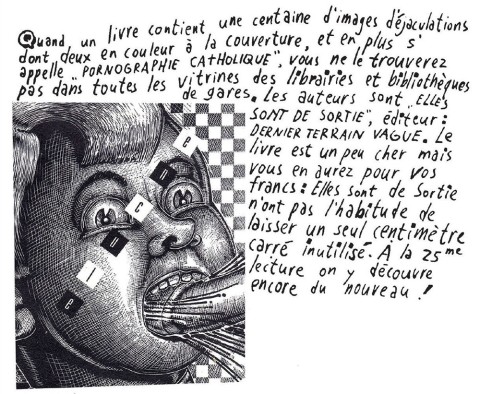 Quand, un livre contient, une centaine d'images d'éjaculations
dont deux en couleur à la couverture, et en plus s'
appelle "PORNOGRAPHIE CATHOLIQUE", vous ne le trouverez
pas dans toutes les vitrines des librairies et bibliothèques
de gares. Les auteurs sont "ELLES
SONT DE SORTIE", éditeur:
DERNIER TERRAIN VAGUE. Le
livre est un peu cher mais
vous en aurez pour vos
francs: Elles sont de Sortie
n'ont pas l'habitude de
laisser un seul centimètre
carré inutilisé. A la 25me
lecture on y découvre
encore du nouveau!